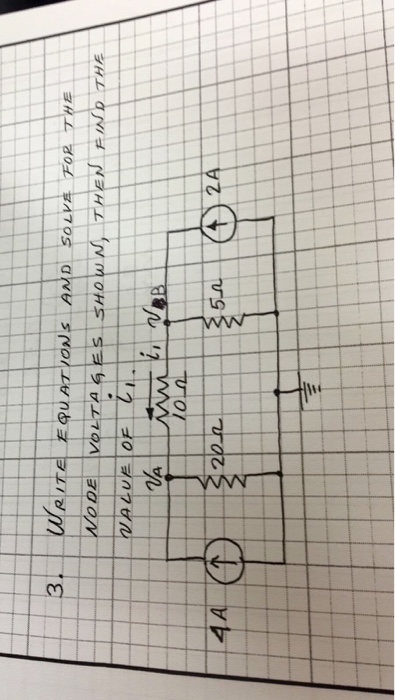 3. WRITE EQUATIONS AND SOLVE FOR THE
NODE VOLTAGES SHOWN, THEN FIND THE
VALUE OF i₁.
vA
i₁
vB
10Ω
4A
20Ω
5Ω
2A